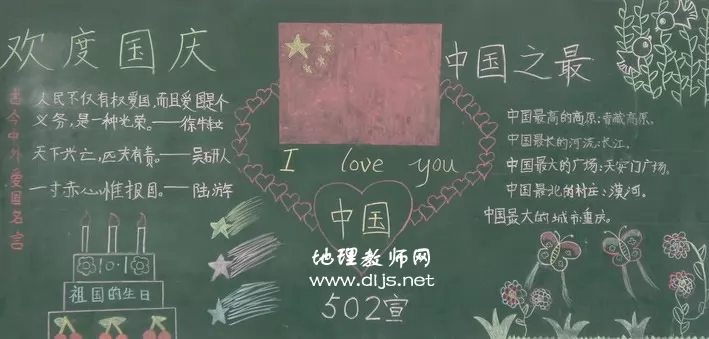 欢度国庆
古今中外爱国名言
人民不仅有权爱国,而且爱国是个
义务,是一种光荣。——徐特立
天下兴亡,匹夫有责。——吴研人
一寸赤心惟报国。——陆游
10·1
祖国的生日
I love you
中国
地理教师网
www.dljs.net
502宣
中国之最
中国最高的高原:青藏高原。
中国最长的河流:长江。
中国最大的广场:天安门广场。
中国最北的村庄:漠河。
中国最大的城市:重庆。